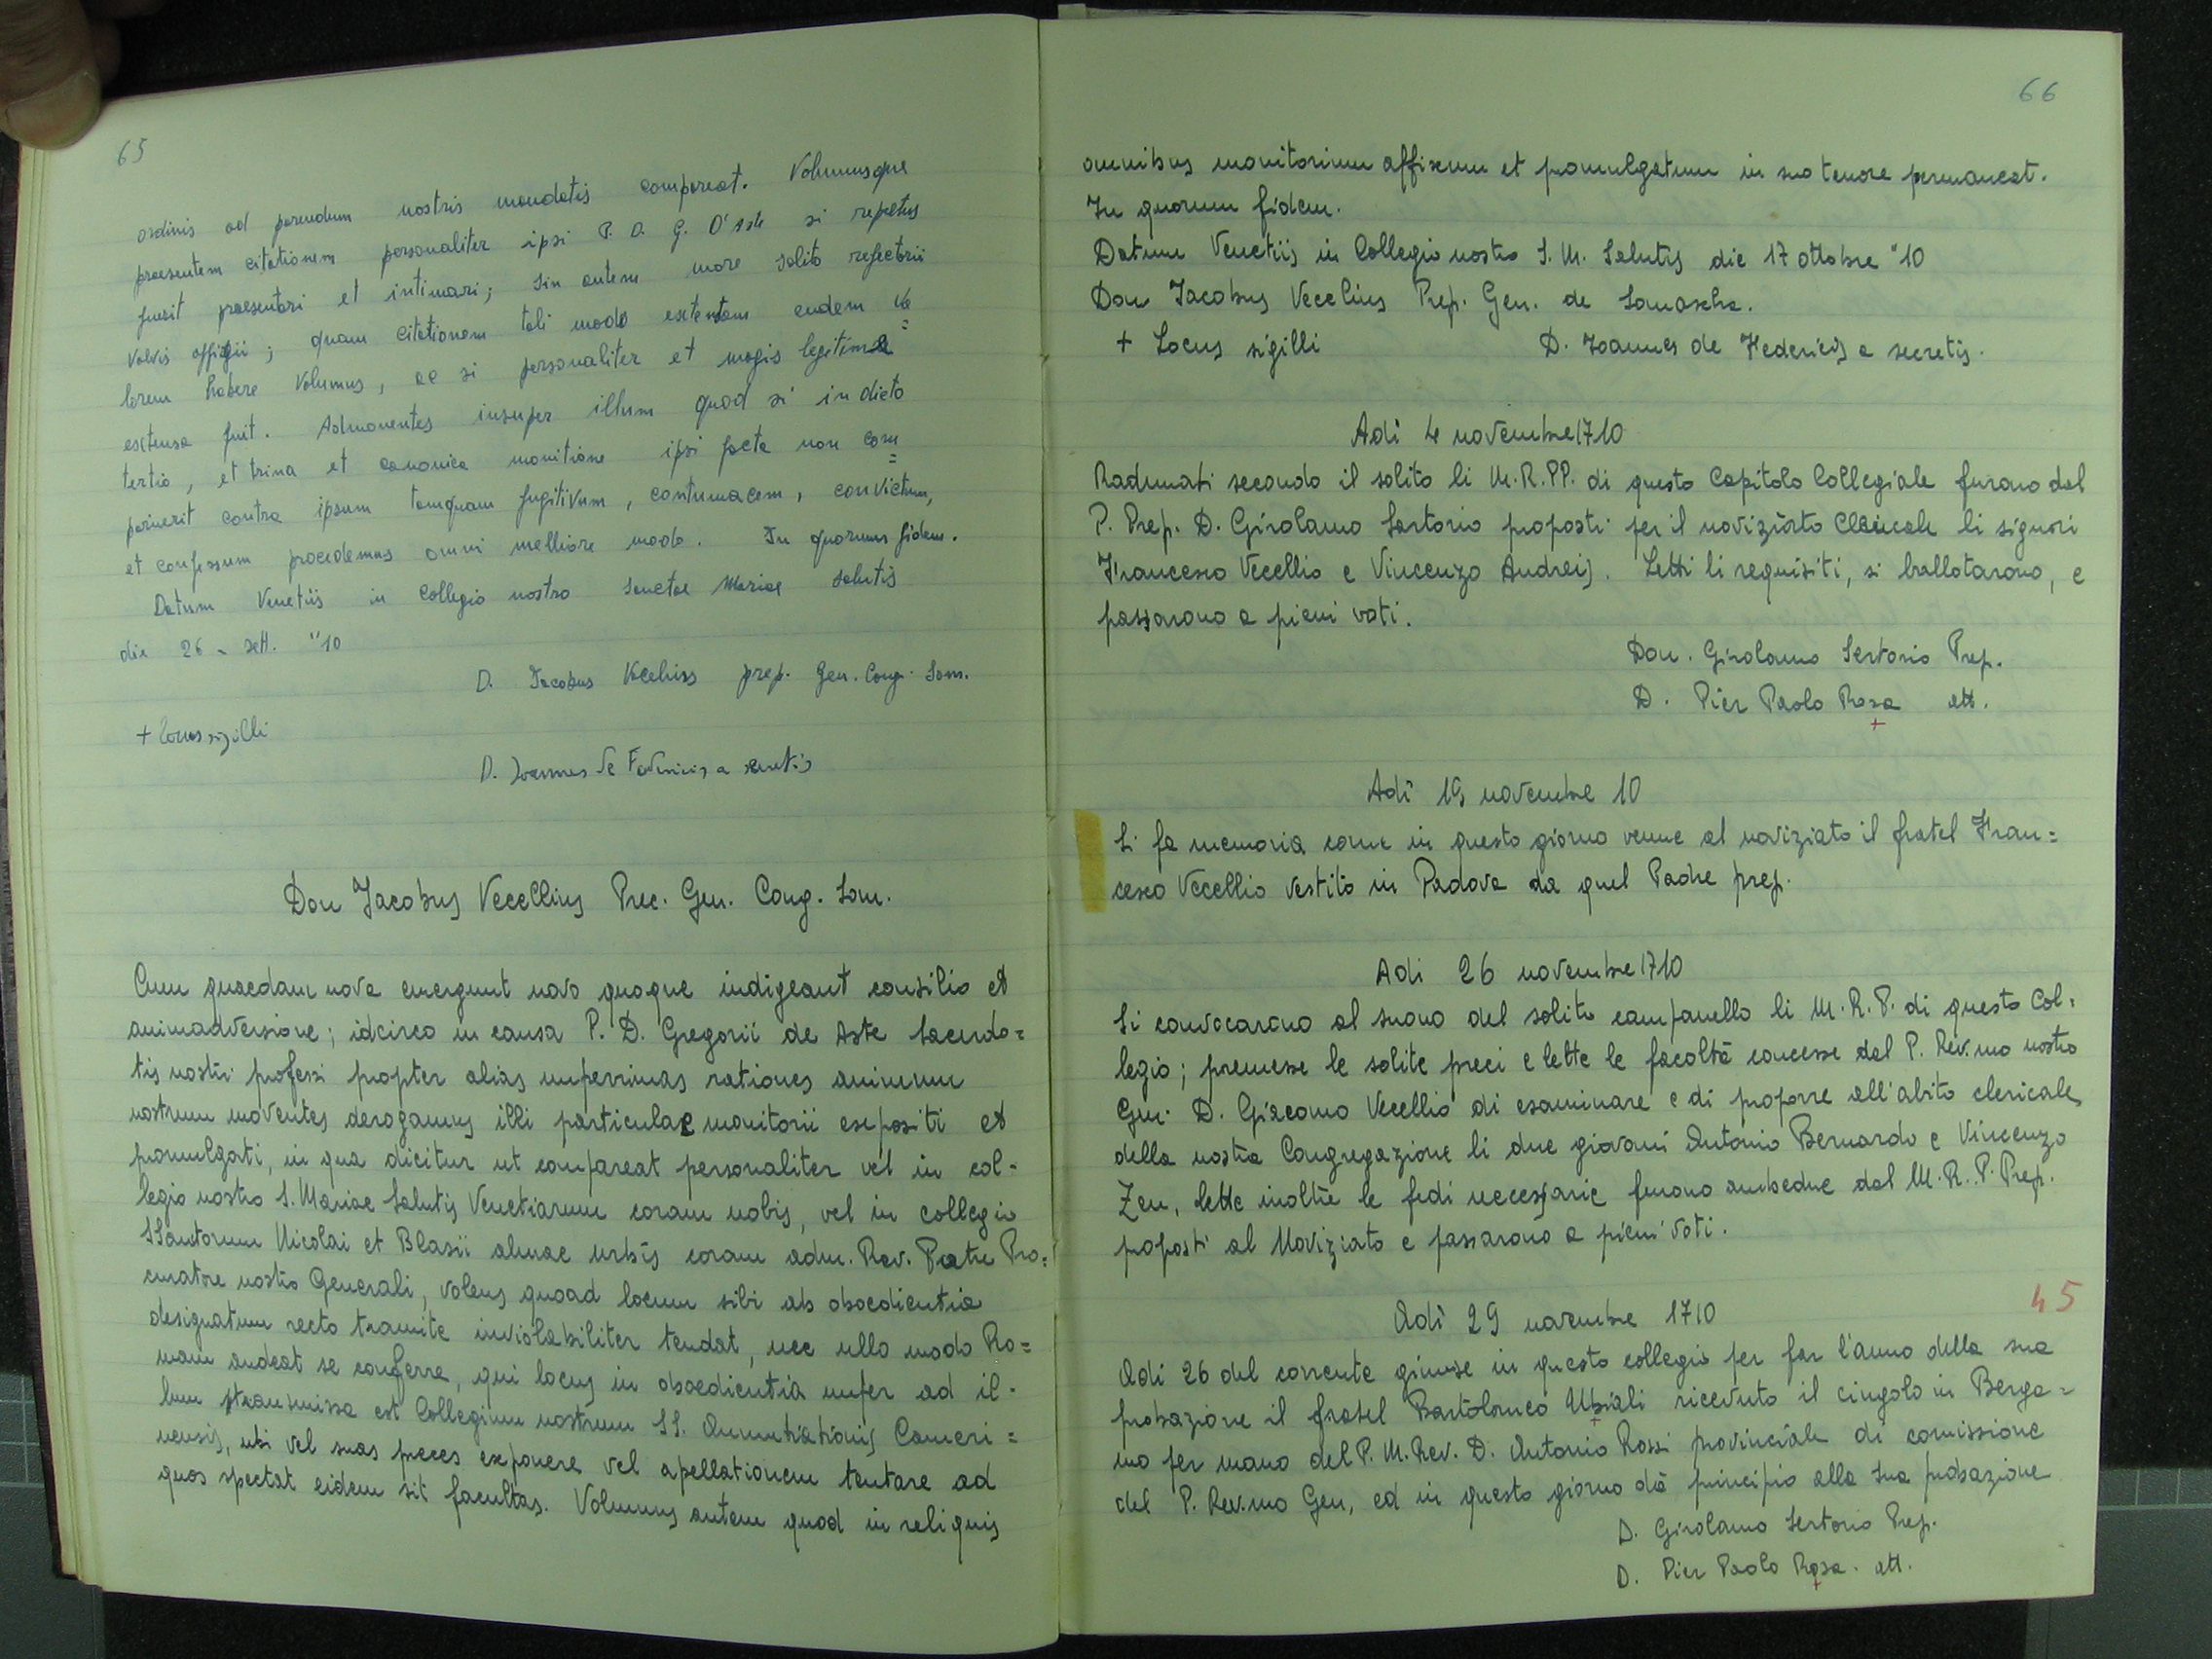 65
ordinis ad parendum nostris mandatis compareat. Volumusque
praesentem citationem personaliter ipsi P. D. G. D'Aste si repertus
fuerit praesentari et intimari; sin autem more solito refectorii
valvis affigii; quam citationem tali modo extensam eudem va=
lorem habere Volumus, ac si personaliter et magis legitime
extensa fuit. Admonentes insuper illum quod si in dicto
tertio, et trina et canonica monitione ipsi facta non com=
paruerit contra ipsum tamquam fugitivum, contumacem, convictum,
et confessum procedemus omni melliore modo. In quorum fidem.
Datum Venetiis in Collegio nostro Sanctae Mariae Salutis
die 26 - sett. "10
D. Jacobus Vecelius prep. Gen. Cong. Som.
+ locus sigilli
D. Joannes de Federicis a secretis
Don Jacobus Vecellius Prec. Gen. Cong. Som.
Cum quaedam nova emergunt novo quoque indigeant consilio et
animadversione; idcirco in causa P. D. Gregorii de Aste Sacerdo=
tis nostri professi propter alias nuperrimas rationes animum
nostrum moventes derogamus illi particulae monitorii expositi et
promulgati, in qua dicitur ut compareat personaliter vel in col-
legio nostro S. Mariae Salutis Venetiarum coram nobis, vel in collegio
SSantorum Nicolai et Blasii almae urbis coram adm. Rev. Patre Pro=
curatore nostro Generali, volens quoad locum sibi ab oboedientia
designatum recto tramite inviolabiliter tendat, nec ullo modo Ro=
mam audeat se conferre, qui locus in oboedientia nuper ad il-
lum transmissa est Collegium nostrum SS. Annuntiationis Cameri=
nensis, ubi vel suas preces exponere vel apellationem tentare ad
quos spectat eidem sit facultas. Volumus autem quod in reliquis
66
omnibus monitorium affixum et promulgatum in suo tenore permaneat.
In quorum fidem.
Datum Venetiis in Collegio nostro S. M. Salutis die 17 ottobre "10
Don Jacobus Vecelius Prep. Gen. de Somascha.
+ Locus sigilli D. Joannes de Federicis a secretis.
Adì 4 novembre 1710
Radunati secondo il solito li M. R. PP. di questo Capitolo Collegiale furono dal
P. Prep. D. Girolamo Sertorio proposti per il noviziato Clericale li signori
Francesco Vecellio e Vincenzo Andreis. Letti li requisiti, si ballotarono, e
passarono a pieni voti.
Don. Girolamo Sertorio Prep.
D. Pier Paolo Rosa att.
Adì 19 novembre 10
Si fa memoria come in questo giorno venne al noviziato il fratel Fran=
cesco Vecellio vestito in Padova da quel Padre prep.
Adi 26 novembre 1710
Si convocarono al suono del solito campanello li M. R. P. di questo Col=
legio; premesse le solite preci e lette le facoltà concesse dal P. Rev.mo nostro
Gen. D. Giacomo Vecellio di esaminare e di proporre all'abito clericale
della nostra Congregazione li due giovani Antonio Bernardo e Vincenzo
Zen, lette inoltre le fedi necessarie furono ambedue dal M. R. P. Prep.
proposti al Noviziato e passarono a pieni voti.
45
Adì 29 novembre 1710
Adi 26 del corrente giunse in questo collegio per far l'anno della sua
probazione il fratel Bartolomeo Ubiali ricevuto il cingolo in Berga=
mo per mano del P. M. Rev. D. Antonio Rossi provinciale di comissione
del P. Rev.mo Gen, ed in questo giorno dà principio alla sua probazione
D. Girolamo Sertorio Prep.
D. Pier Paolo Rosa. att.